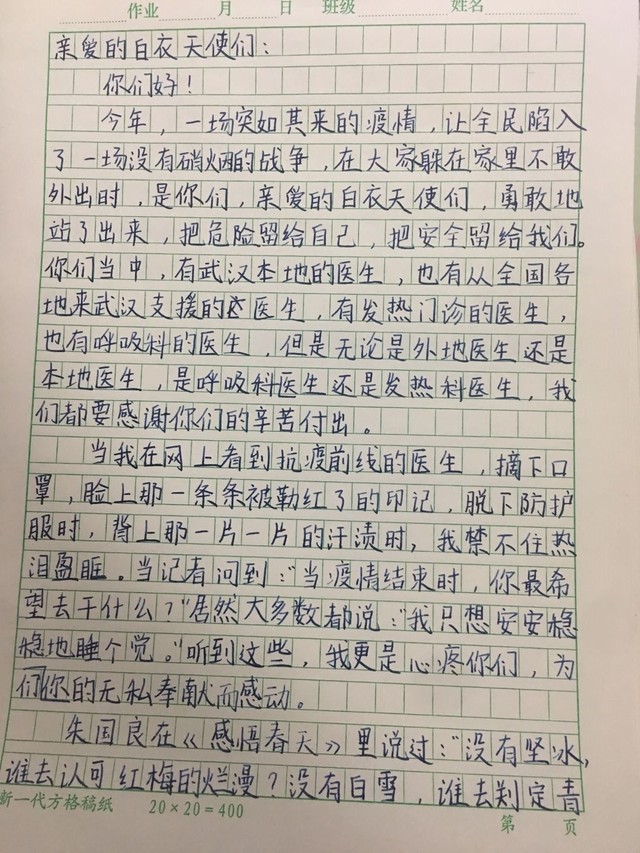 作业 月 日 班级 姓名
亲爱的白衣天使们：
你们好！
今年，一场突如其来的疫情，让全民陷入
了一场没有硝烟的战争，在大家躲在家里不敢
外出时，是你们，亲爱的白衣天使们，勇敢地
站了出来，把危险留给自己，把安全留给我们。
你们当中，有武汉本地的医生，也有从全国各
地来武汉支援的医生，有发热门诊的医生，
也有呼吸科的医生，但是无论是外地医生还是
本地医生，是呼吸科医生还是发热科医生，我
们都要感谢你们的辛苦付出。
当我在网上看到抗疫前线的医生，摘下口
罩，脸上那一条条被勒红了的印记，脱下防护
服时，背上那一片一片的汗渍时，我禁不住热
泪盈眶。当记者问到：“当疫情结束时，你最希
望去干什么？”居然大多数都说：“我只想安安稳
稳地睡个觉。”听到这些，我更是心疼你们，为
们你的无私奉献而感动。
朱国良在《感悟春天》里说过：“没有坚冰，
谁去认可红梅的烂漫？没有白雪，谁去判定青
新一代方格稿纸 20×20=400 第 页